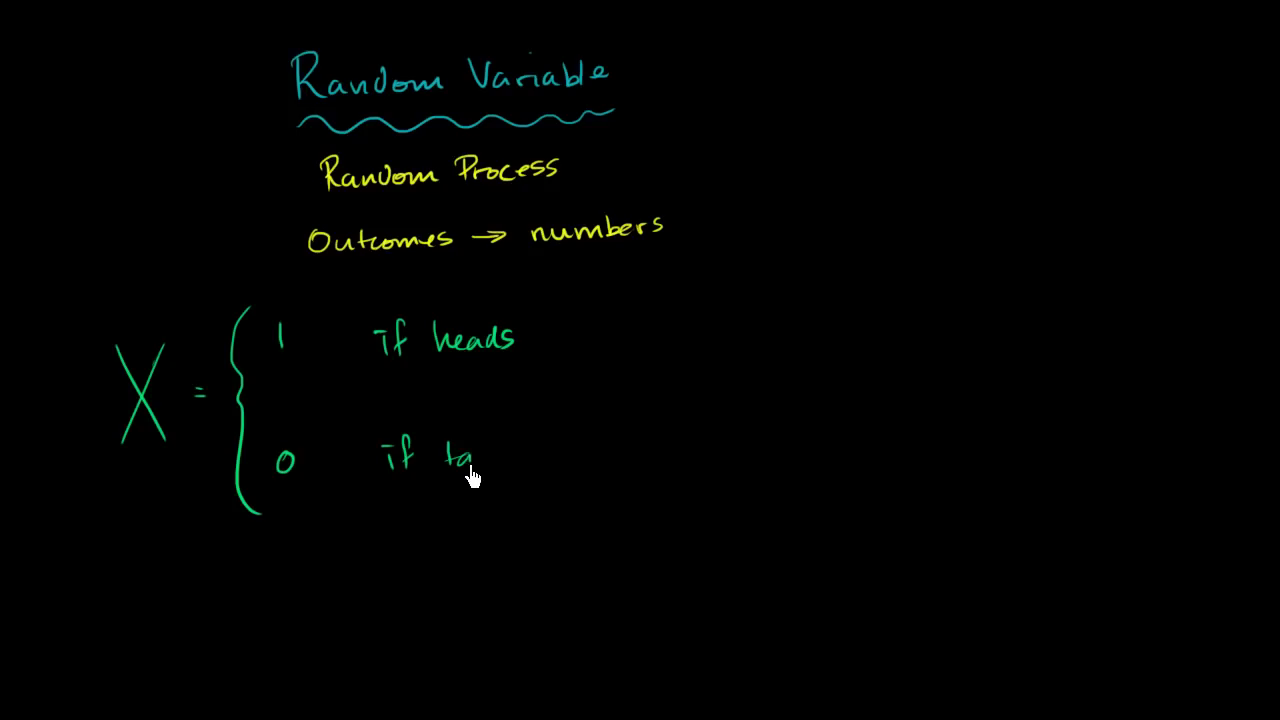 Random Variable
Random Process
Outcomes → numbers
X = { 1 if heads
0 if ta